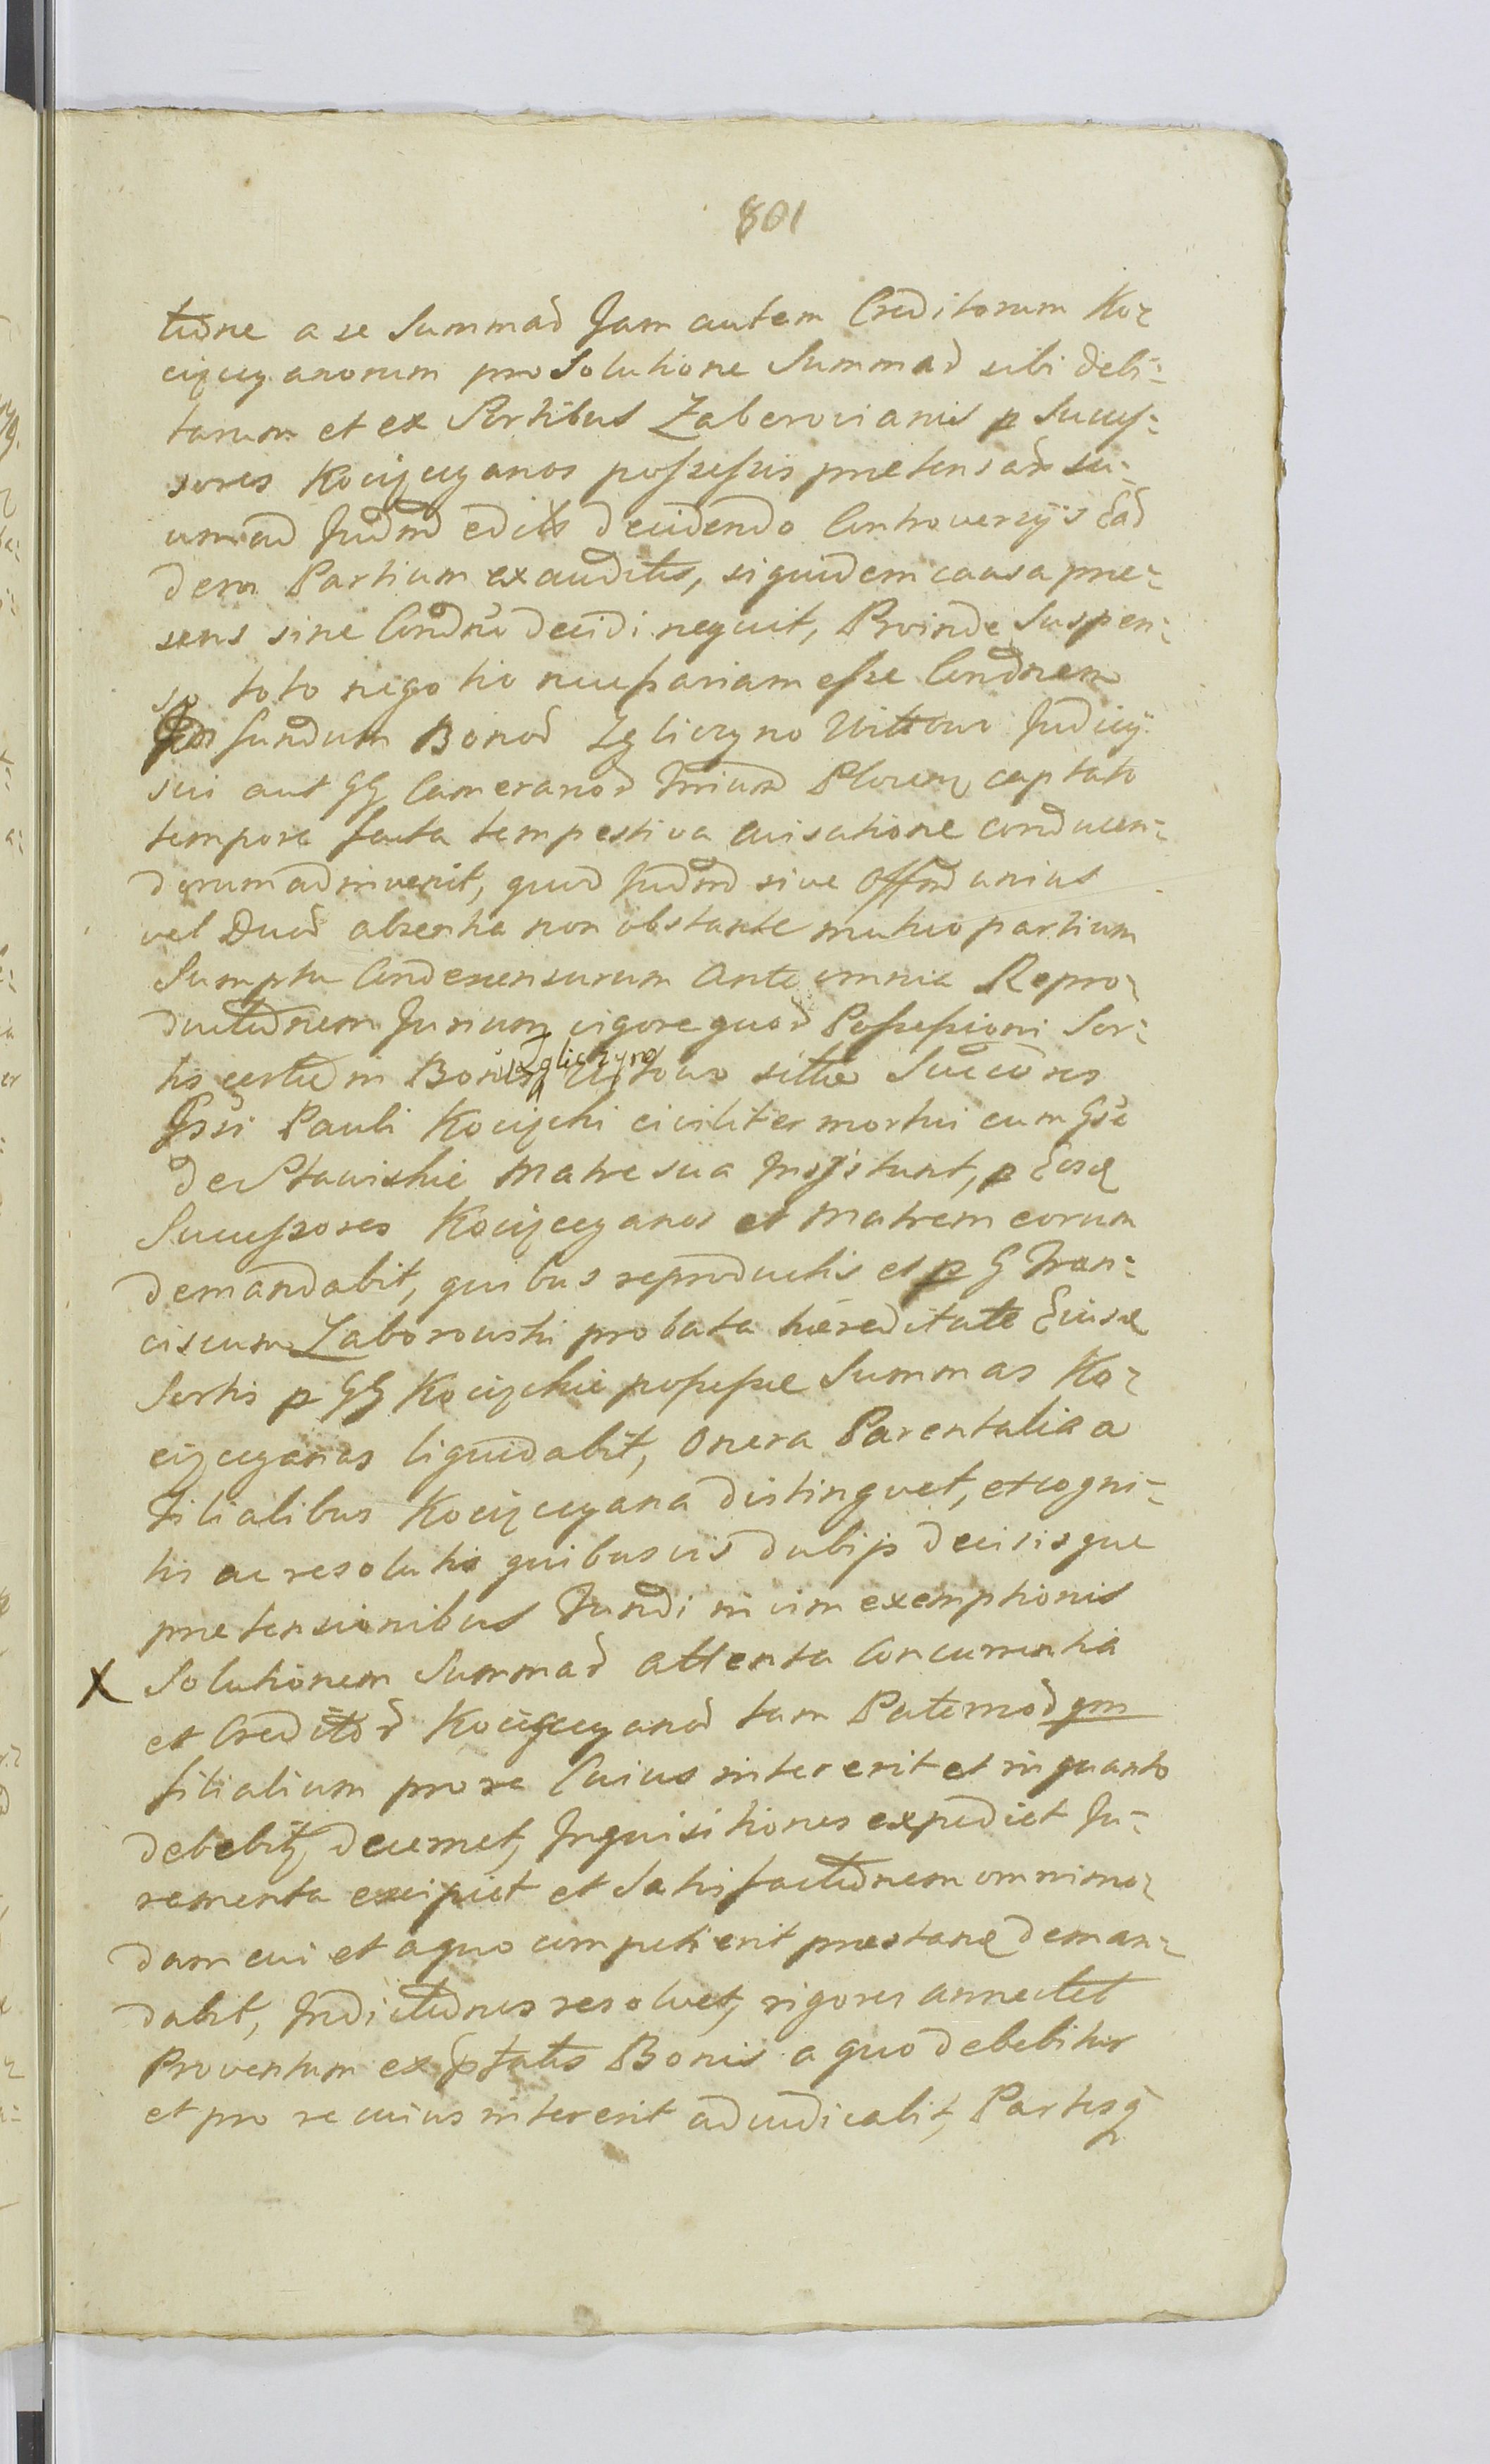 801
tiōne a se Summaꝝ Jam autem Creditorum Ko-
cijcyanorum pro Solutione Summaꝝ sibi debi-
tarum et ex Sortibus Zaborovianis p Succes-
sores Kocijcyanos possessis prætensaꝝ
Judm edits decidendo Controversijs Ead
dem Partium exauditis, siquidem causa præ-
sens sine Condnē decidi nequit, Proinde Suspen-
so toto negotio necessariam esse Condnem
fundum Bonoꝝ Zgliczyno Wittowo Judicij
sui aut GG Cameranoꝝ Trium Plocen, captato
tempore facta tempestiva avisatione conducen-
derum adinvenit, quod Judm sive Offm unius
vel Duoꝝ absentia non obstante mutuo partium
Sumptu Condescensurum Ante omnia Repro-
ductiōnem Jurium vigore quoꝝ Possessioni Sor-
tis certæ in Bonis Zgliczyno Witowo sittæ Succōres
Gsi Pauli Kocijski civiliter mortui cum Gsa
de Stawiskie Matre sua Insistunt, p Eosd
Successores Kocijcyanos et Matrem eorum
demandabit, quibus reproductis et p G Fran-
ciscum Zaborowski probata hæreditate Eiusd
Sortis p GG Kocijskie possessæ Summas Ko-
cijcyanas liquidabit, Onera Parentalia a
Filialibus Kocijcyana distinguet, et cogni-
tis ac resolutis quibusvis dubijs decisisque
prætensionibus Fundi in vim exemptionis
X Solutionem Summaꝝ attenta Concurrentia
et Creditoꝝ Kocijcyanoꝝ tam Paternoꝝ qm
filialium pro re Cuius intererit et in quanto
debebit, decernet, Inquisitiones expediet Ju-
ramenta excipiet et Satisfactiōnem omnimo-
dam cui et a quo competierit præstare deman-
dabit, Indictiōnes resolvet, rigores annectet
Proventum ex pftatis Bonis a quo debebitur
et pro re cuius intererit adiudicabit, Partesq